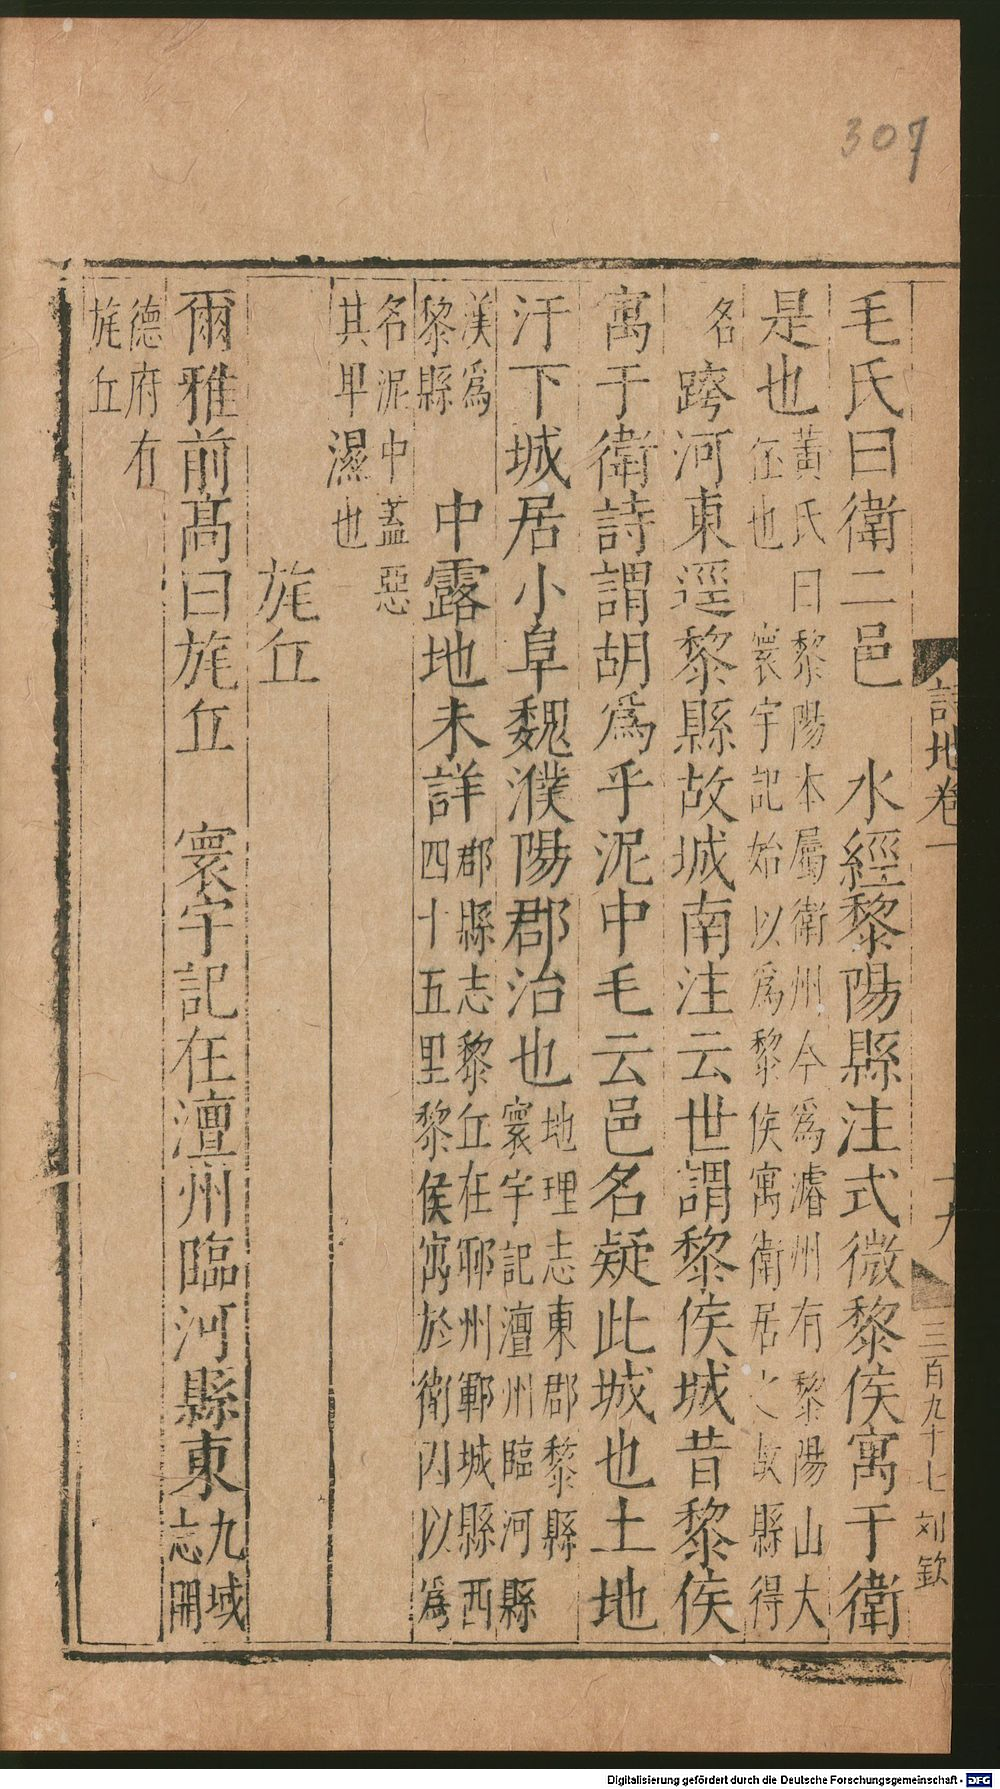 307
毛氏曰衛二邑　水經黎陽縣注式微黎侯寓于衛
是也黃氏曰黎陽本屬衛州今爲濬州有黎陽山大
伾也　寰宇記始以爲黎侯寓衛居之故縣得
名　跨河東逕黎縣故城南注云世謂黎侯城昔黎侯
寓于衛詩謂胡爲乎泥中毛云邑名疑此城也土地
汙下城居小阜魏濮陽郡治也地理志東郡黎縣
寰宇記澶州臨河縣
漢爲
黎縣　中露地未詳郡縣志黎丘在鄆州鄆城縣西
四十五里黎侯寓於衛因以爲
名泥中蓋惡
其卑濕也
旄丘
爾雅前高曰旄丘　寰宇記在澶州臨河縣東九域
志開
德府有
旄丘
詩地卷一
十九
三百九十七
刘欽
Digitalisierung gefördert durch die Deutsche Forschungsgemeinschaft - DFG